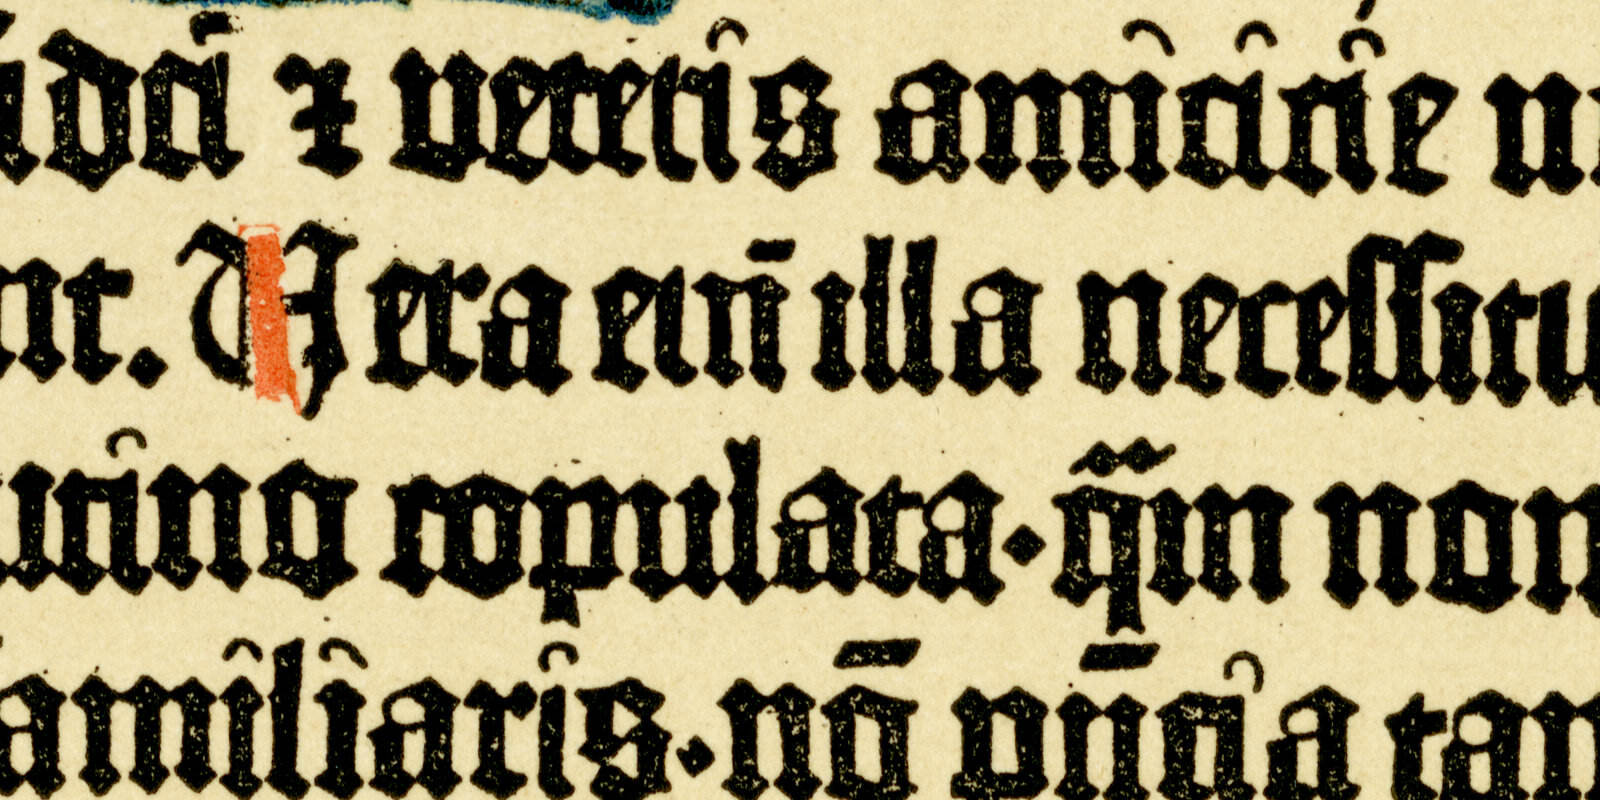 idei ⁊ veteris amicicie n
nt. Vera eni̅ illa necessitu
utino copulata· q̄m non
amiliaris· nō pn̄cia tan